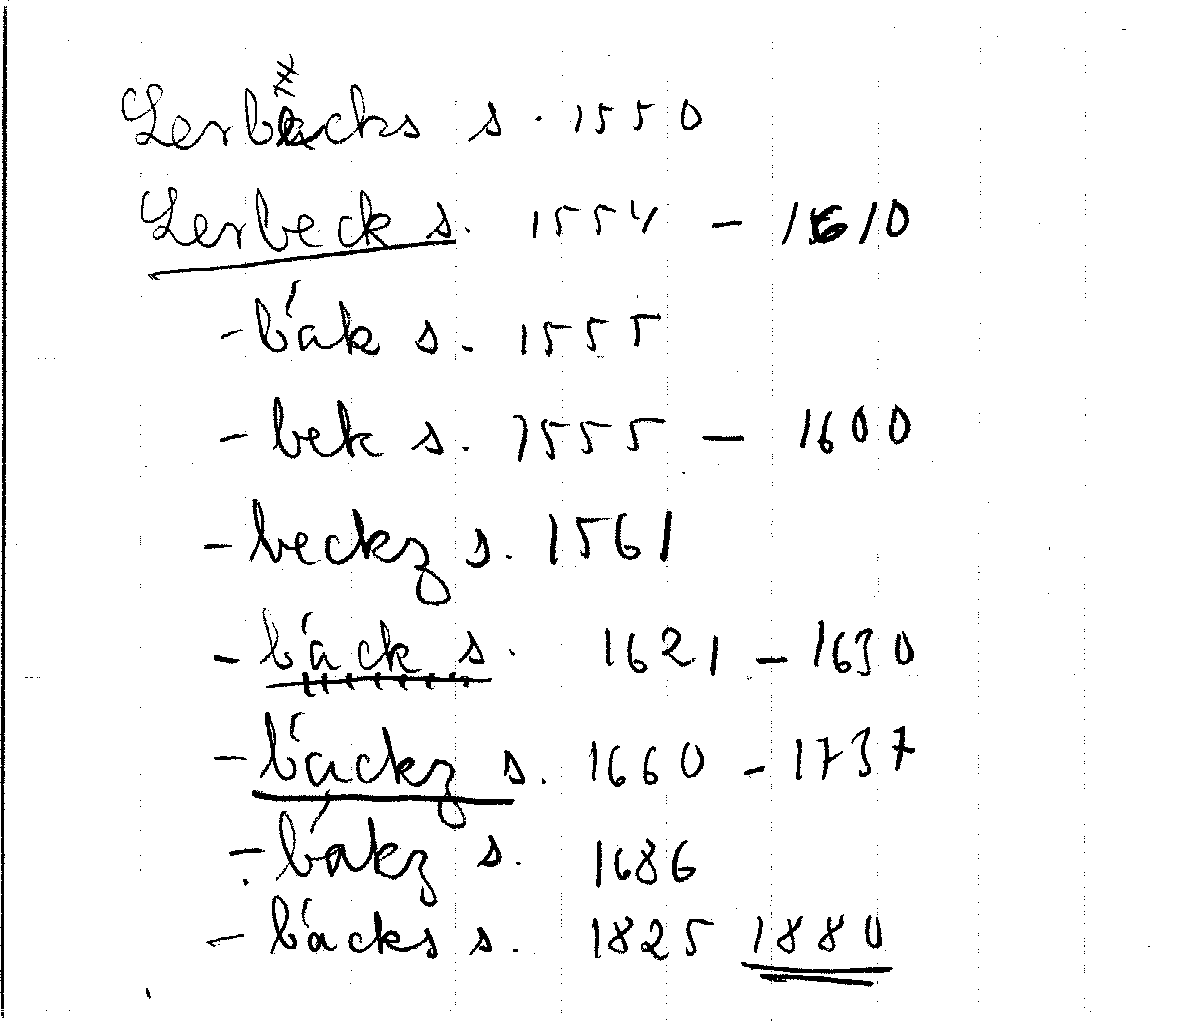 Lerbecks s. 1550
Lerbeck s. 1554 - 1610
- bäk s. 1555
- bek s. 1555 - 1600
- beckz s. 1561
- bäck s. 1621 - 1630
- bäckz s. 1660 - 1737
- bäkz s. 1686
- bäcks s. 1825 1880